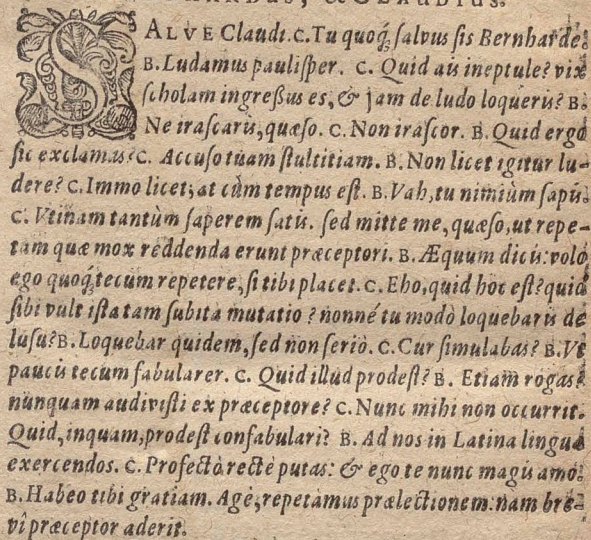 SALVE Claudi. C. Tu quoq́; salvus sis Bernharde.
B. Ludamus paulisper. C. Quid ais ineptule? vix
scholam ingreßus es, & jam de ludo loqueris? B.
Ne irascaris, quæso. C. Non irascor. B. Quid ergo
sic exclamas? C. Accuso tuam stultitiam. B. Non licet igitur lu-
dere? C. Immo licet; at cùm tempus est. B. Vah, tu nimiùm sapis.
C. Vtinam tantùm saperem satis. sed mitte me, quæso, ut repe-
tam quæ mox reddenda erunt præceptori. B. Æquum dicis: volo
ego quoq́; tecum repetere, si tibi placet. C. Eho, quid hoc est? quid
sibi vult ista tam subita mutatio? nonné tu modò loquebaris de
lusu? B. Loquebar quidem, sed non seriò. C. Cur simulabas? B. Vt
paucis tecum fabularer. C. Quid illud prodest? B. Etiam rogas?
nunquam audivisti ex præceptore? C. Nunc mihi non occurrit.
Quid, inquam, prodest confabulari? B. Ad nos in Latina lingua
exercendos. C. Profectò rectè putas: & ego te nunc magis amo.
B. Habeo tibi gratiam. Age, repetamus prælectionem: nam bre-
vi præceptor aderit.